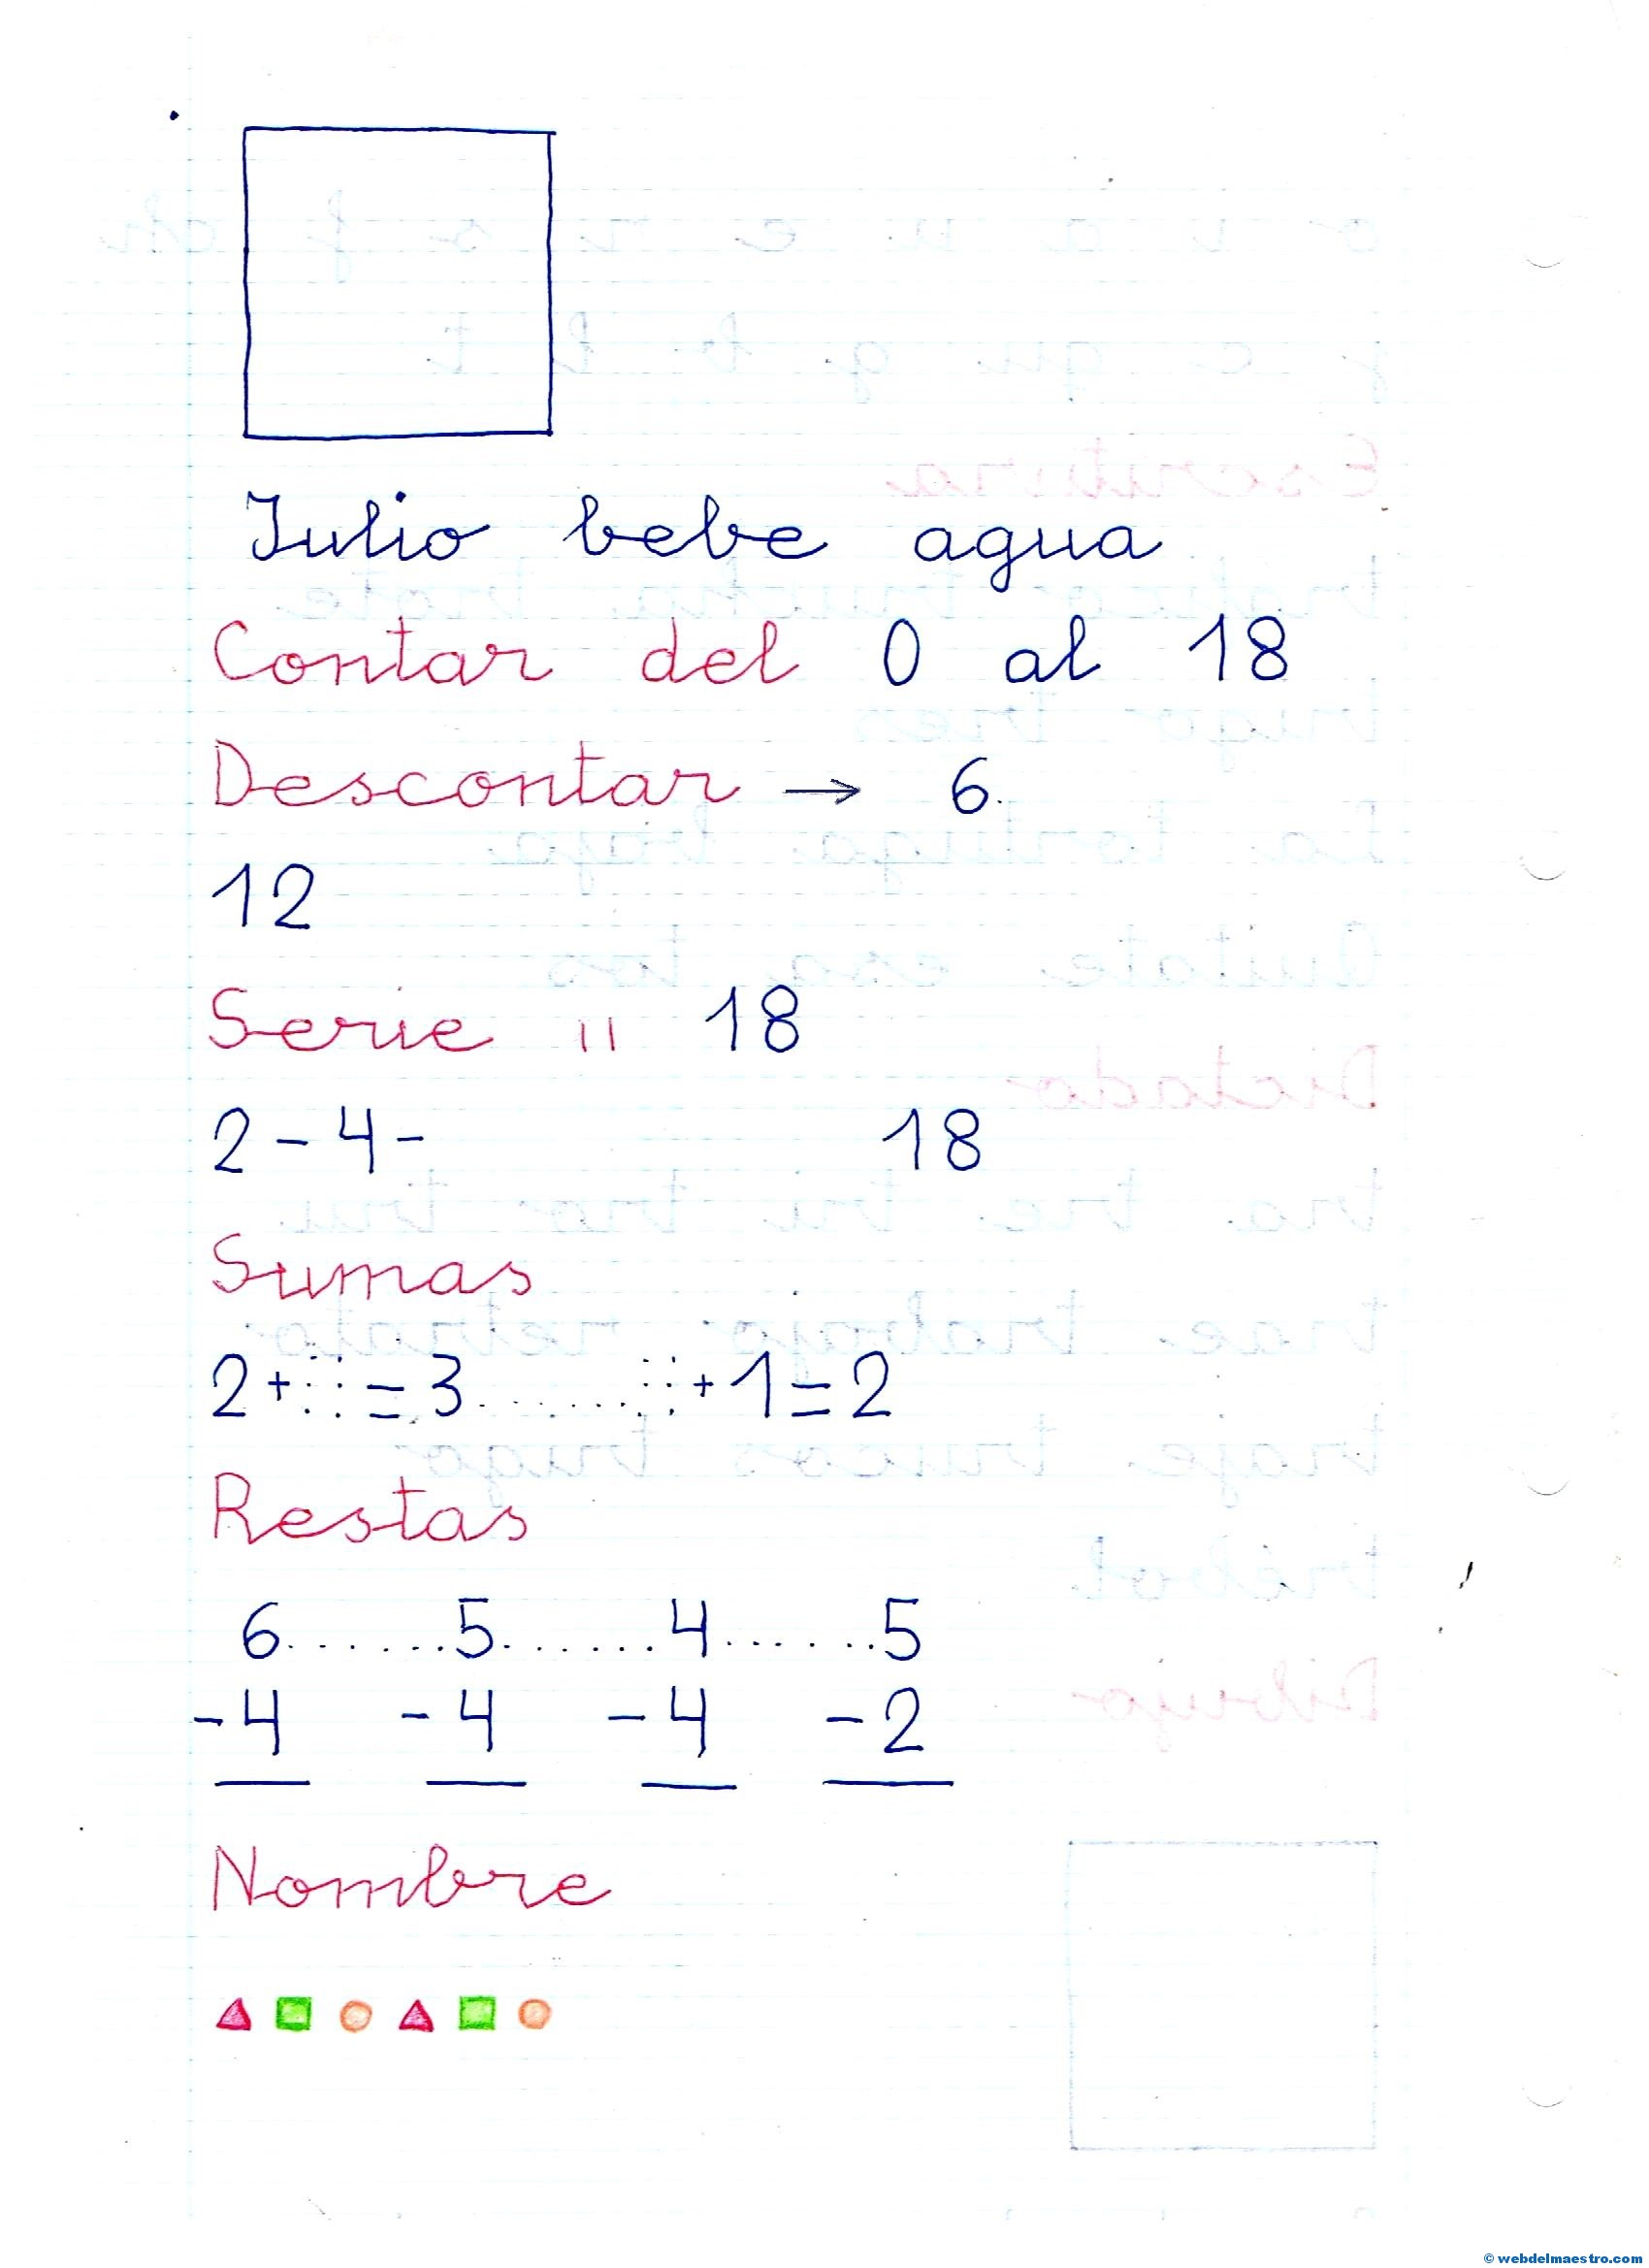 Julio bebe agua
Contar del 0 al 18
Descontar → 6
12
Serie 11 18
2 - 4 - 18
Sumas
2 + = 3 ........ + 1 = 2
Restas
6.......5.......4.......5
- 4 - 4 - 4 - 2
Nombre
© webdelmaestro.com